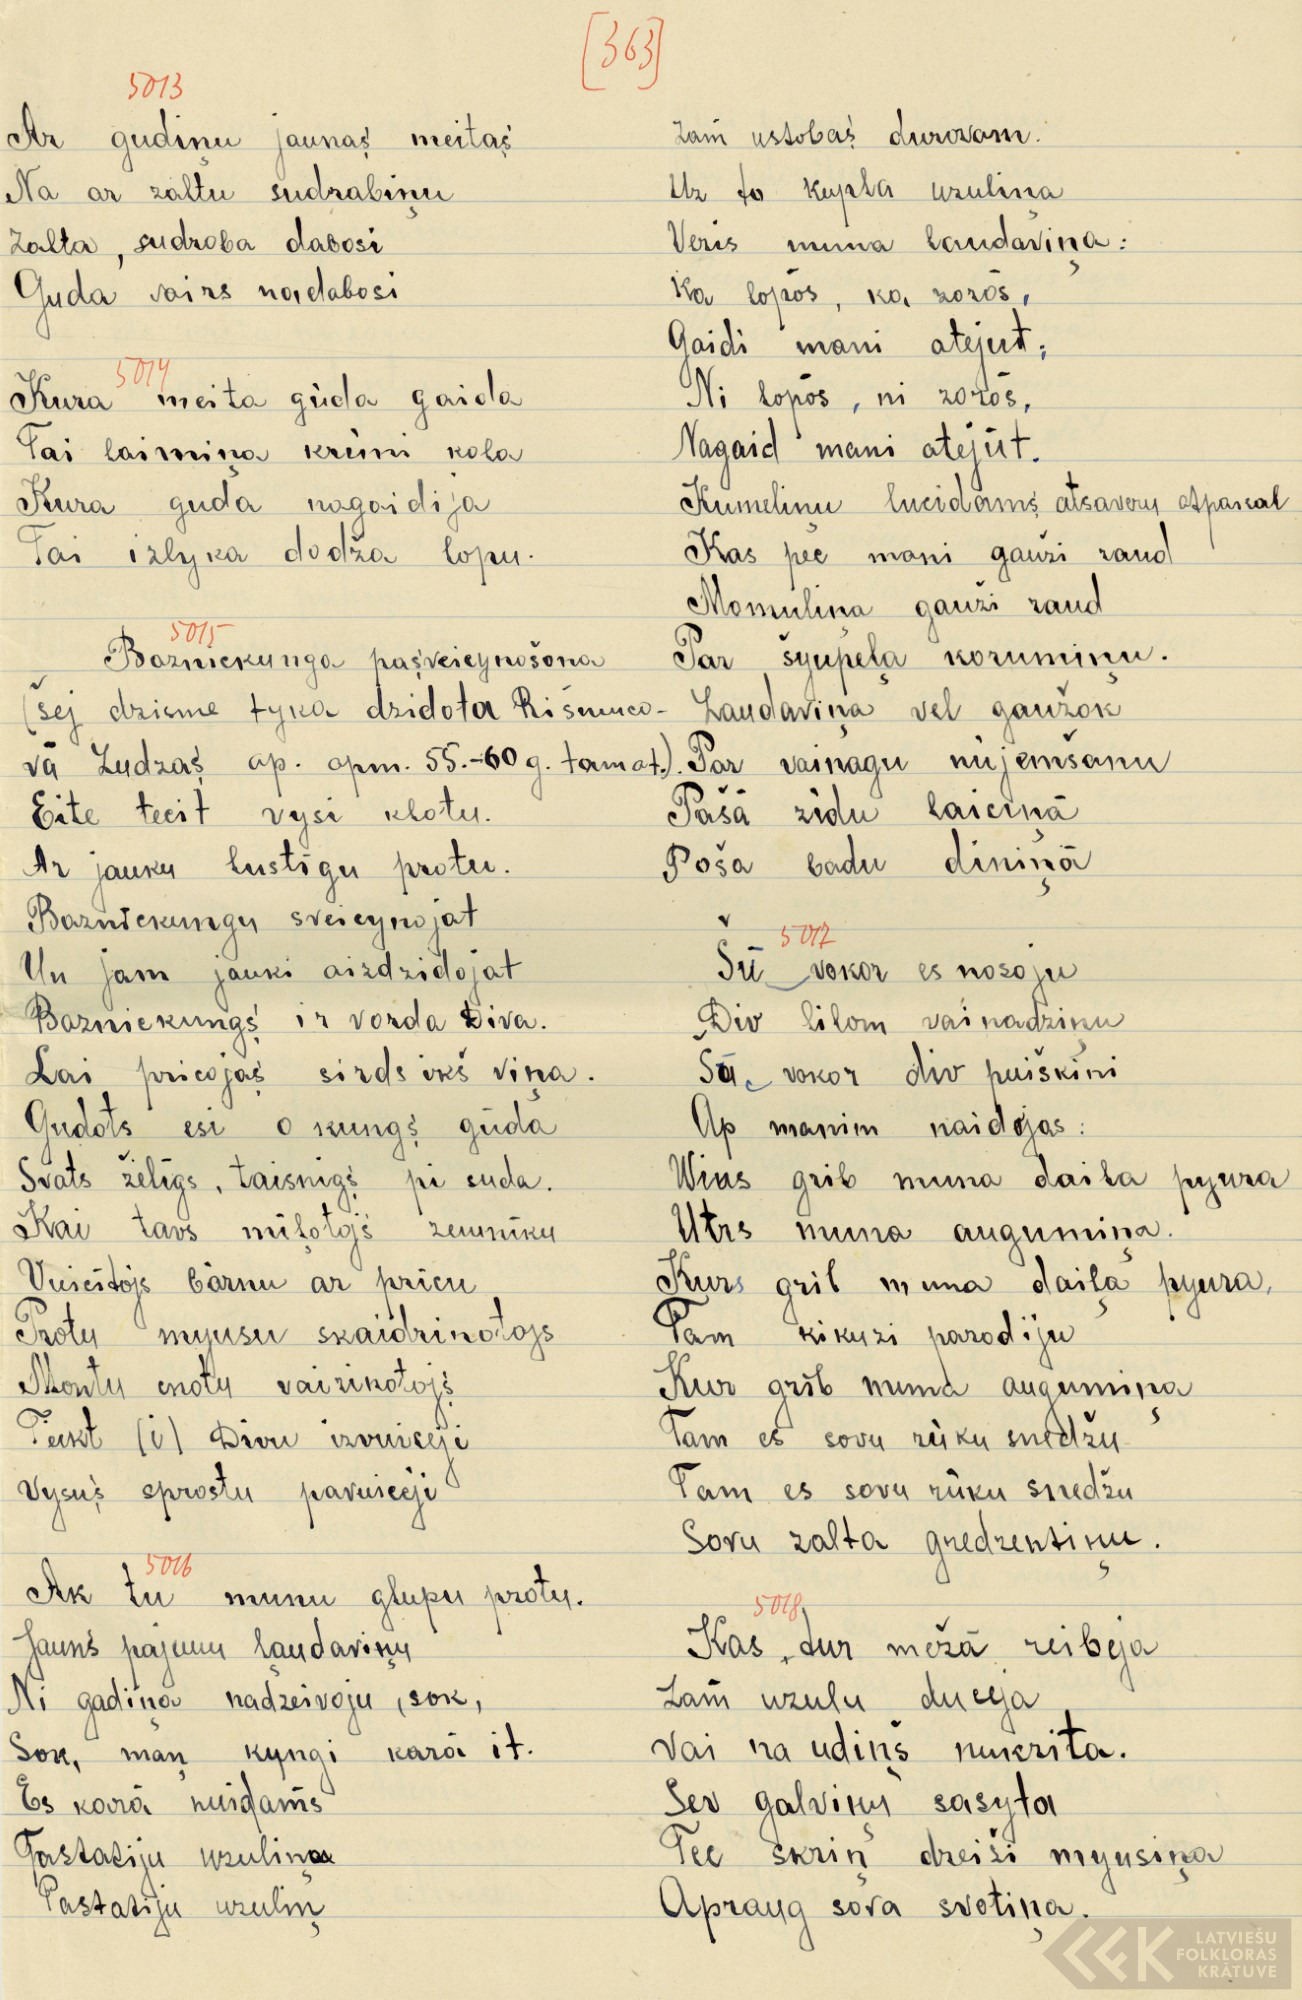 [363]
5013
Ar gudiņu jaunaś meitaś
Na ar zaltu sudrabiņu
Zalta, sudroba dabosi
Guda vairs nadabosi
5014
Kura meita gùda gaida
Tai laimiņa krèmi kola
Kura guda nagaidija
Tai izlyka dodža lopu.
5015
Bazniekunga paşveicynošona
(šej dzisme tyka dzidota Rišmuco-
vā Ludzaş ap. apm. 55.-60 g. tamat.).
Eite tecit vysi klotu.
Ar jauku lustīgu protu.
Baznīckungu sveicynojat
Un jam jauki aizdzidojat
Baznickungş ir vorda Diva.
Lai pricojaş sirds ikš viņa.
Gudots esi o kungş gùda
Svats želīgs, taisnigş pi suda.
Kai tavs mīļotojś zemnīku
Vuicītōjs bārnu ar prīcu
Protu myusu skaidrinotojs
Montu cnotu vairinotojş
Tukt (i) Divu izvuiceji
Vysuş sprostu pavuiceji
5016
Ak tu munu glupu protu.
Jaunś pajemu ļaudaviņu
Ni gadiņa nadzeivoju, sok,
Sok, maņ kyngi karā it.
Es korā nuidams
Pastatiju uzuliņa
Pastatiju uzuliņ
Zam ustobaş durovam.
Uz to kupla uzuliņa
Veris muna laudaviņa:
Ka lopōs, ka zorōs,
Gaidi mani atejut;
Ni lopōs, ni zorōs,
Nagaid mani atejūt.
Kumeliņu lucidamş atsaveru atpakal
Kas pēc mani gauži raud
Momuliņa gauži raud
Par šyupeļa korumiņu.
Laudaviņa vel gaužok
Par vainagu nùjemšanu
Pašā zīdu laiciņā
Poša badu diniņā
5017
Šū vokor es nosoju
Div lilom vainadziņu
Šū vokor div puiškini
Ap manim naidojas:
Wins grib muna daiļa pyura
Utrs muna augumiņa.
Kurs grib muna daiļa pyura,
Tam kikuzi parodiju
Kur grib muna augumiņa
Tam es sovu rūku snedžu
Tam es sovu rūku snedžu
Sovu zalta gredzentiņu.
5018
Kas tur mežā reibeja
Zam uzulu duceja
Vai na udiņš nukrita.
Sev galviņu sasyta
Tec skriņ dzeiži myusiņa
Apraug sova svotiņa.
LATVIEŠU
FOLKLORAS
KRĀTUVE